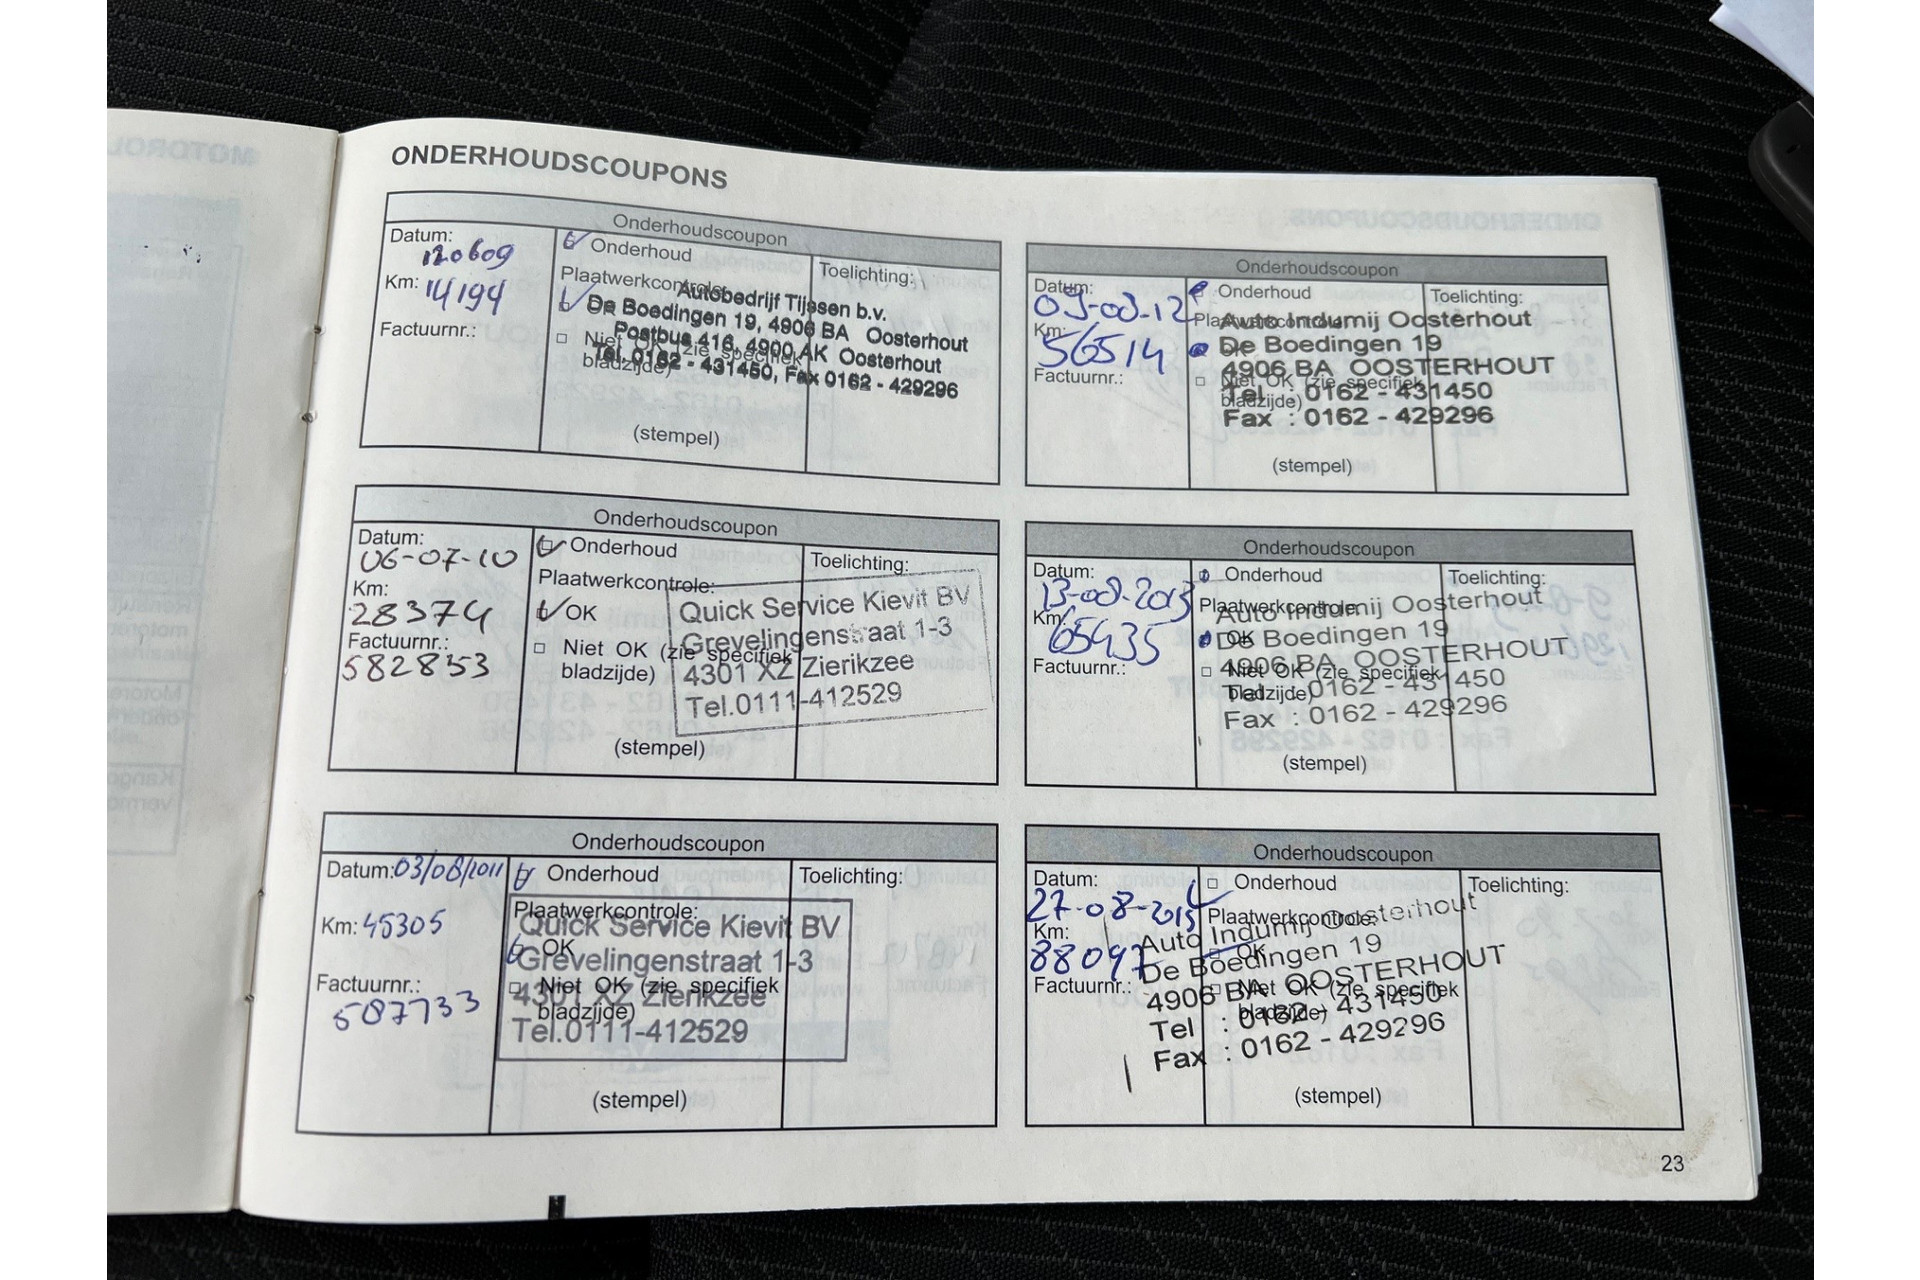 ONDERHOUDSCOUPONS
Onderhoudscoupon
Datum:
120609
Km: 14194
Factuurnr.:
Onderhoud
Plaatwerkcontrole:
OK
Niet OK (zie specifiek
bladzijde)
Autobedrijf Tijssen b.v.
De Boedingen 19, 4906 BA Oosterhout
Postbus 416, 4900 AK Oosterhout
Tel. 0162 - 431450, Fax 0162 - 429296
(stempel)
Toelichting:
Onderhoudscoupon
Datum:
06-07-10
Km:
28374
Factuurnr.:
582853
Onderhoud
Plaatwerkcontrole:
OK
Niet OK (zie specifiek
bladzijde)
Quick Service Kievit BV
Grevelingenstraat 1-3
4301 XZ Zierikzee
Tel.0111-412529
(stempel)
Toelichting:
Onderhoudscoupon
Datum: 03/08/2011
Km: 45305
Factuurnr.:
587733
Onderhoud
Plaatwerkcontrole:
OK
Niet OK (zie specifiek
bladzijde)
Quick Service Kievit BV
Grevelingenstraat 1-3
4301 XZ Zierikzee
Tel.0111-412529
(stempel)
Toelichting:
Onderhoudscoupon
Datum:
09-08-12
Km:
56514
Factuurnr.:
Onderhoud
Plaatwerkcontrole:
OK
Niet OK (zie specifiek
bladzijde)
Auto Indumij Oosterhout
De Boedingen 19
4906 BA OOSTERHOUT
Tel : 0162 - 431450
Fax : 0162 - 429296
(stempel)
Toelichting:
Onderhoudscoupon
Datum:
13-08-2013
Km:
65435
Factuurnr.:
Onderhoud
Plaatwerkcontrole:
OK
Niet OK (zie specifiek
bladzijde)
Auto Indumij Oosterhout
De Boedingen 19
4906 BA OOSTERHOUT
Tel : 0162 - 431450
Fax : 0162 - 429296
(stempel)
Toelichting:
Onderhoudscoupon
Datum:
27-08-2015
Km:
88097
Factuurnr.:
Onderhoud
Plaatwerkcontrole:
OK
Niet OK (zie specifiek
bladzijde)
Auto Indumij Oosterhout
De Boedingen 19
4906 BA OOSTERHOUT
Tel : 0162 - 431450
Fax : 0162 - 429296
(stempel)
Toelichting:
23